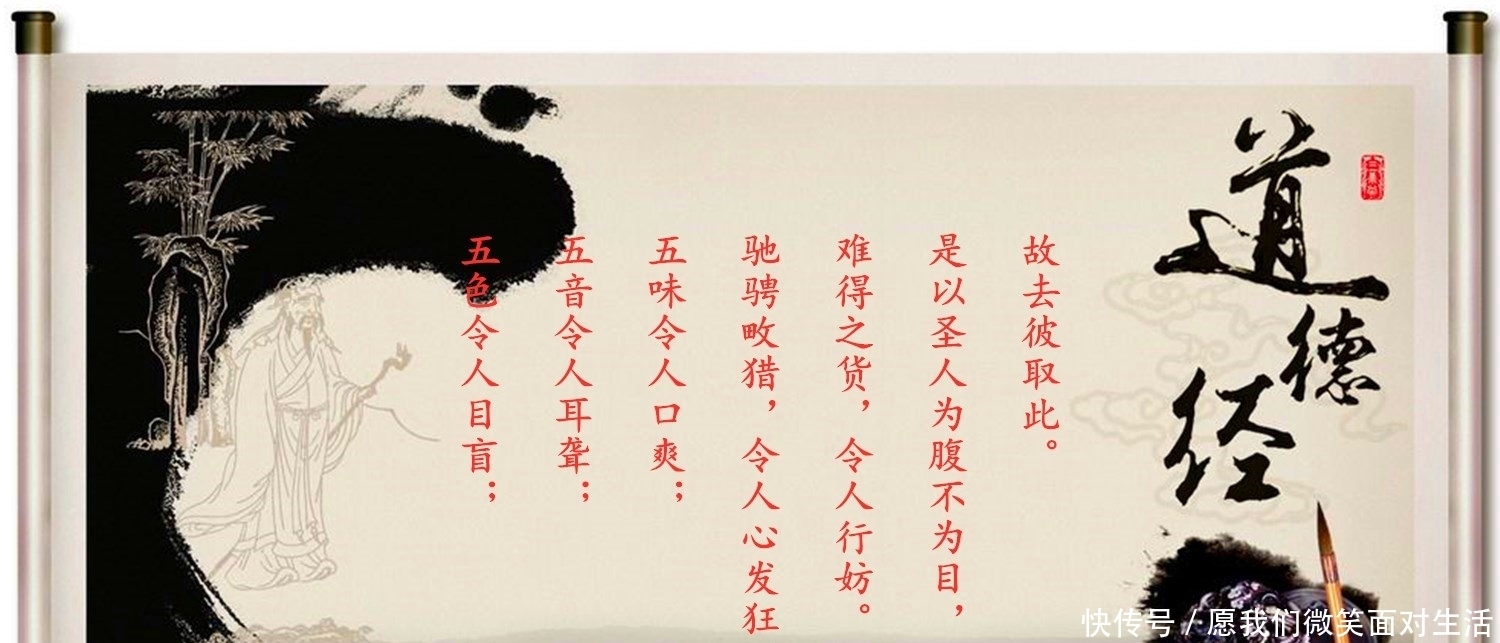 道德经
五色令人目盲；
五音令人耳聋；
五味令人口爽；
驰骋畋猎，令人心发狂
难得之货，令人行妨。
是以圣人为腹不为目，
故去彼取此。
快传号 / 愿我们微笑面对生活